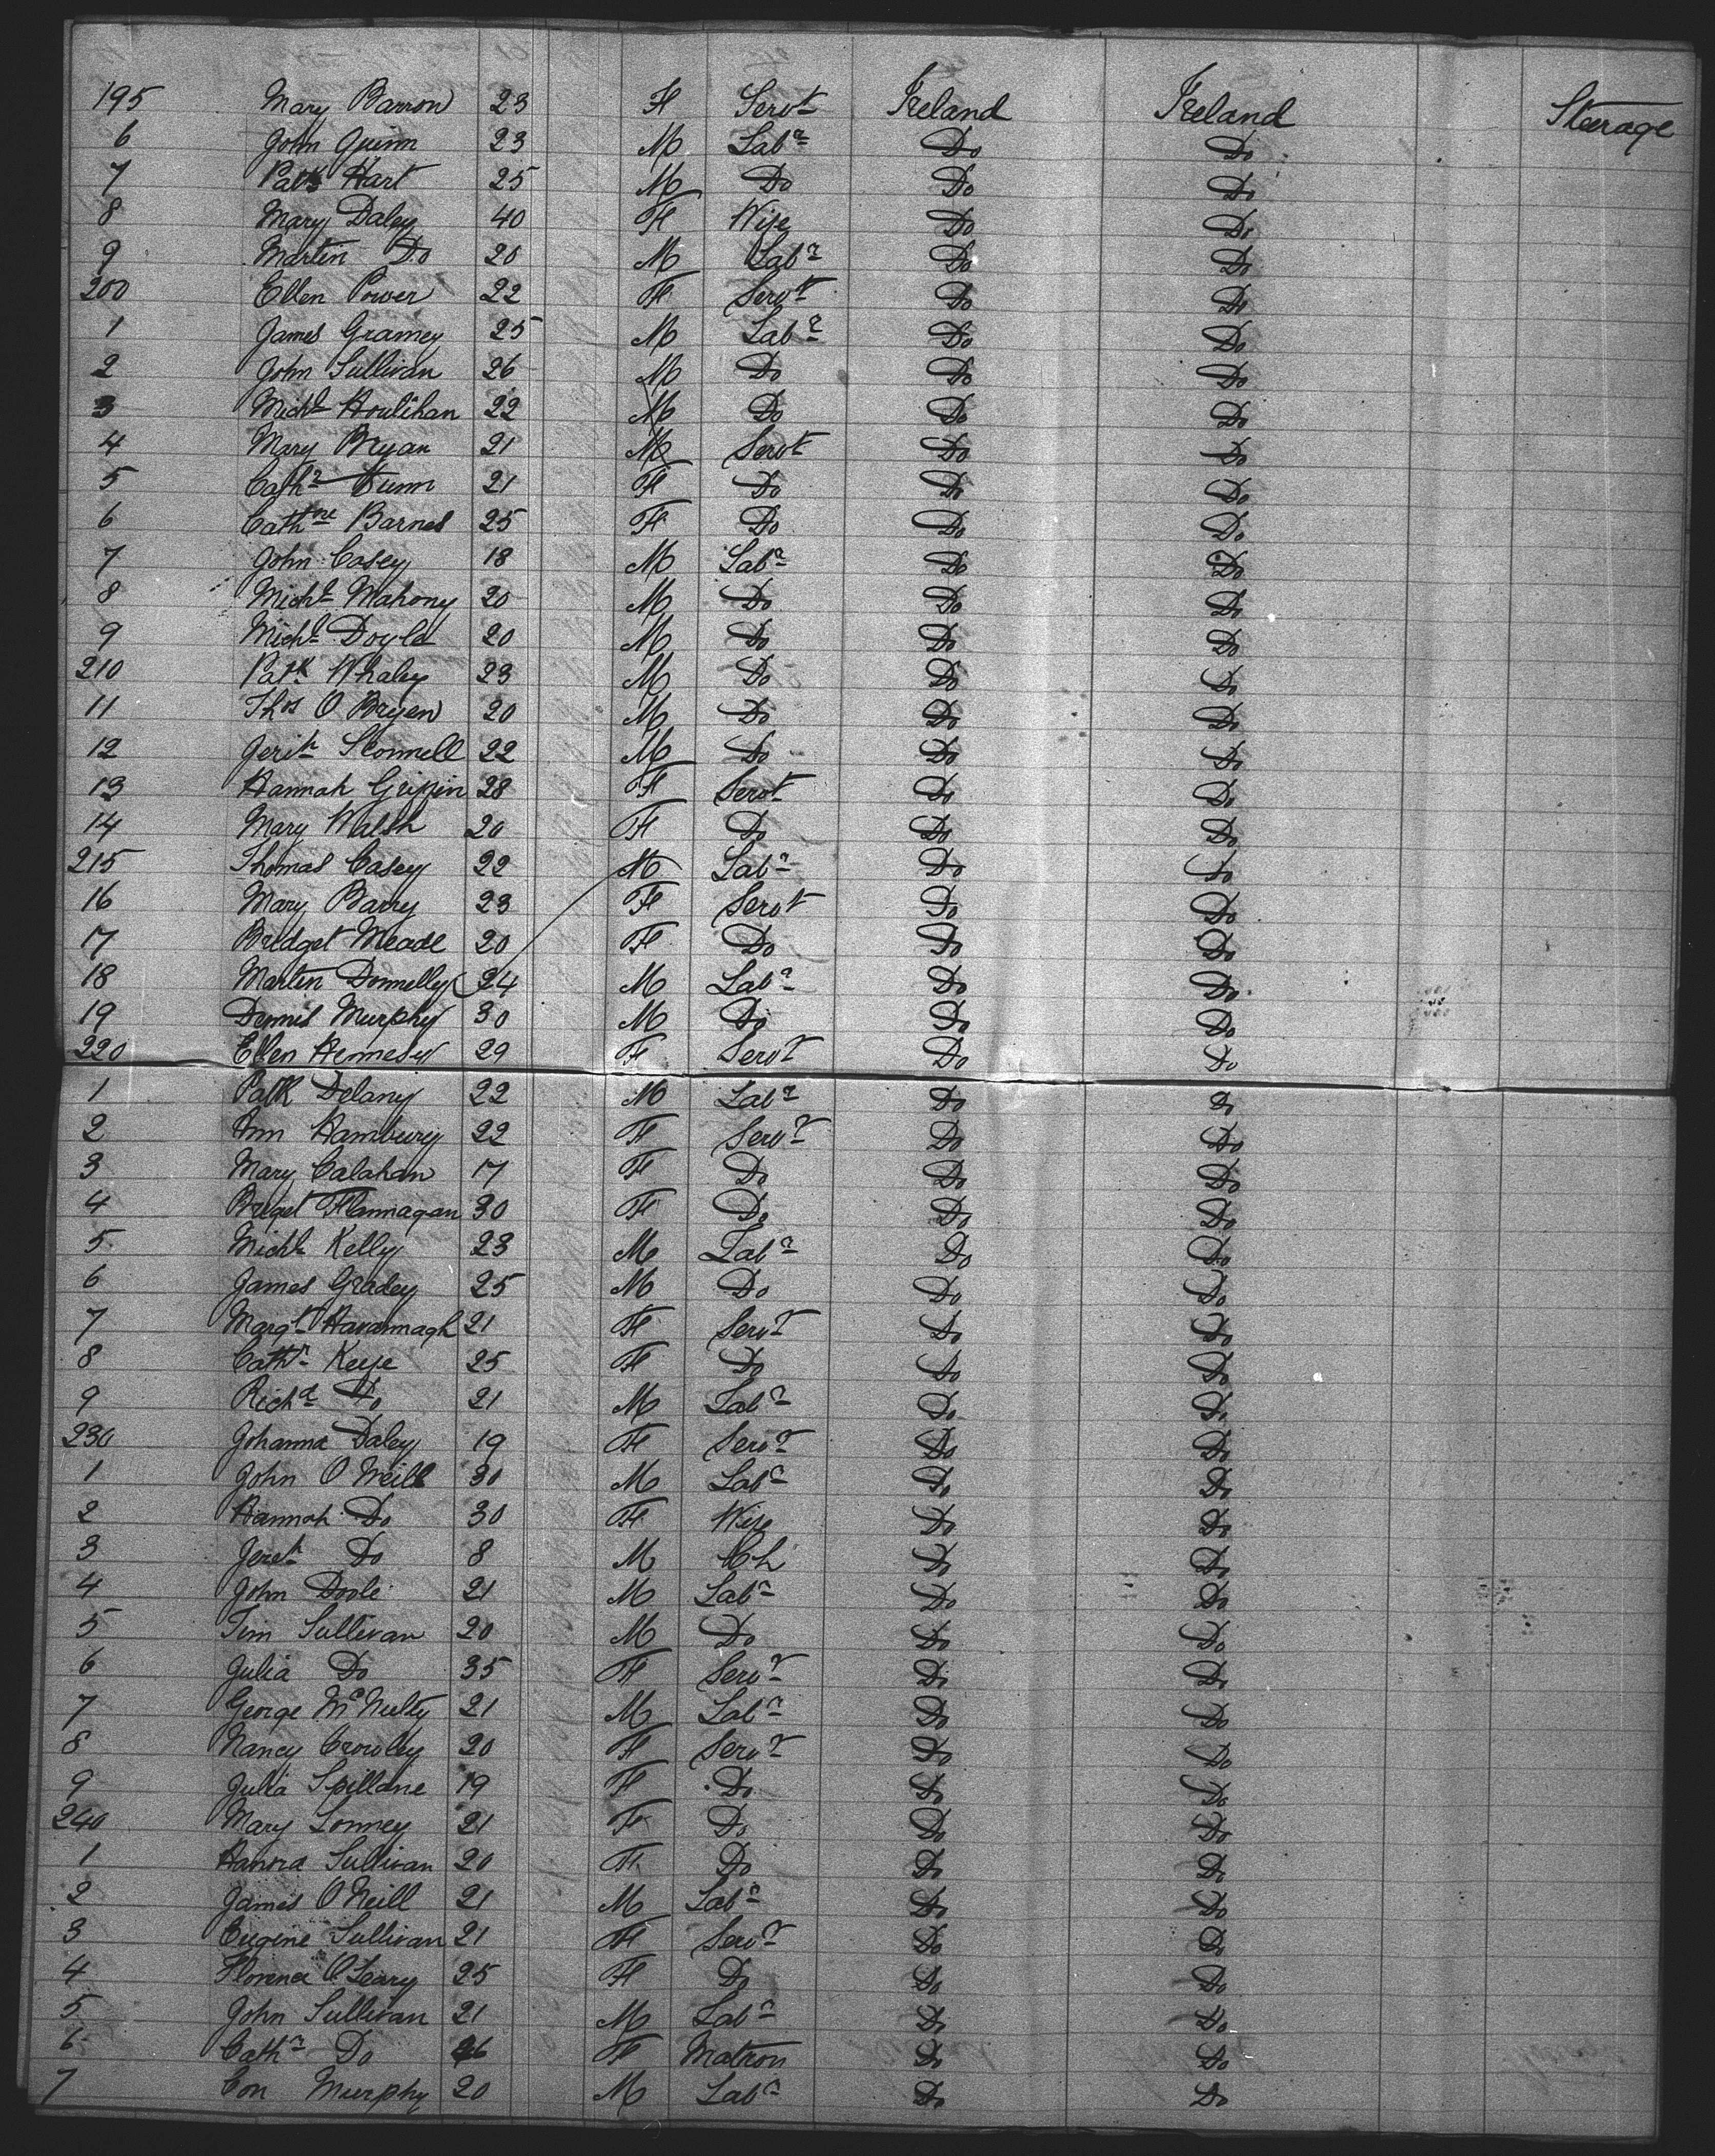 195 Mary Barron 23 F Servt Ireland Ireland Steerage
6 John Quinn 23 M Labr Do Do
7 Patk Hart 25 M Do Do Do
8 Mary Daley 40 F Wife Do Do
9 Martin Do 20 M Labr Do Do
200 Ellen Power 22 F Servt Do Do
1 James Gramey 25 M Labr Do Do
2 John Sullivan 26 M Do Do Do
3 Michl Houlihan 22 M Do Do Do
4 Mary Bryan 21 M Servt Do Do
5 Cathr Dunn 21 F Do Do Do
6 Cathne Barnes 25 F Do Do Do
7 John Casey 18 M Labr Do Do
8 Michl Mahony 20 M Do Do Do
9 Michl Doyle 20 M Do Do Do
210 Patk Whaley 23 M Do Do Do
11 Thos O Bryen 20 M Do Do Do
12 Jerih 22 M Do Do Do
13 Hannah Griffin 28 F Servt Do Do
14 Mary Walsh 20 F Do Do Do
215 Thomas Casey 22 M Labr Do Do
16 Mary Barry 23 F Servt Do Do
17 Bridget Meade 20 F Do Do Do
18 Martin Donnelly 24 M Labr Do Do
19 Dennis Murphy 30 M Do Do Do
220 Ellen Hennesy 29 F Servt Do Do
1 Patk Delany 22 M Labr Do Do
2 Ann Hambury 22 F Servt Do Do
3 Mary Calahan 17 F Do Do Do
4 Briget Flannagan 30 F Do Do Do
5 Michl Kelly 23 M Labr Do Do
6 James Gradey 25 M Do Do Do
7 Margt Kavannagh 21 F Servt Do Do
8 Cathr Keefe 25 F Do Do Do
9 Richd Do 21 M Labr Do Do
230 Johanna Daley 19 F Servt Do Do
1 John O Neill 30 M Labr Do Do
2 Hannah Do 30 F Wife Do Do
3 Jereh Do 8 M Ch Do Do
4 John Doole 21 M Labr Do Do
5 Tim Sullivan 20 M Do Do Do
6 Julia Do 35 F Servt Do Do
7 George McNulty 21 M Labr Do Do
8 Nancy Crowley 20 F Servt Do Do
9 Julia Spillane 19 F Do Do Do
240 Mary Lonney 21 F Do Do Do
1 Hanora Sullivan 20 F Do Do Do
2 James O Neill 21 M Labr Do Do
3 Eugene Sullivan 21 F Servt Do Do
4 Florence O Leary 25 F Do Do Do
5 John Sullivan 21 M Labr Do Do
6 Cathr Do 26 F Matron Do Do
7 Con Murphy 20 M Labr Do Do